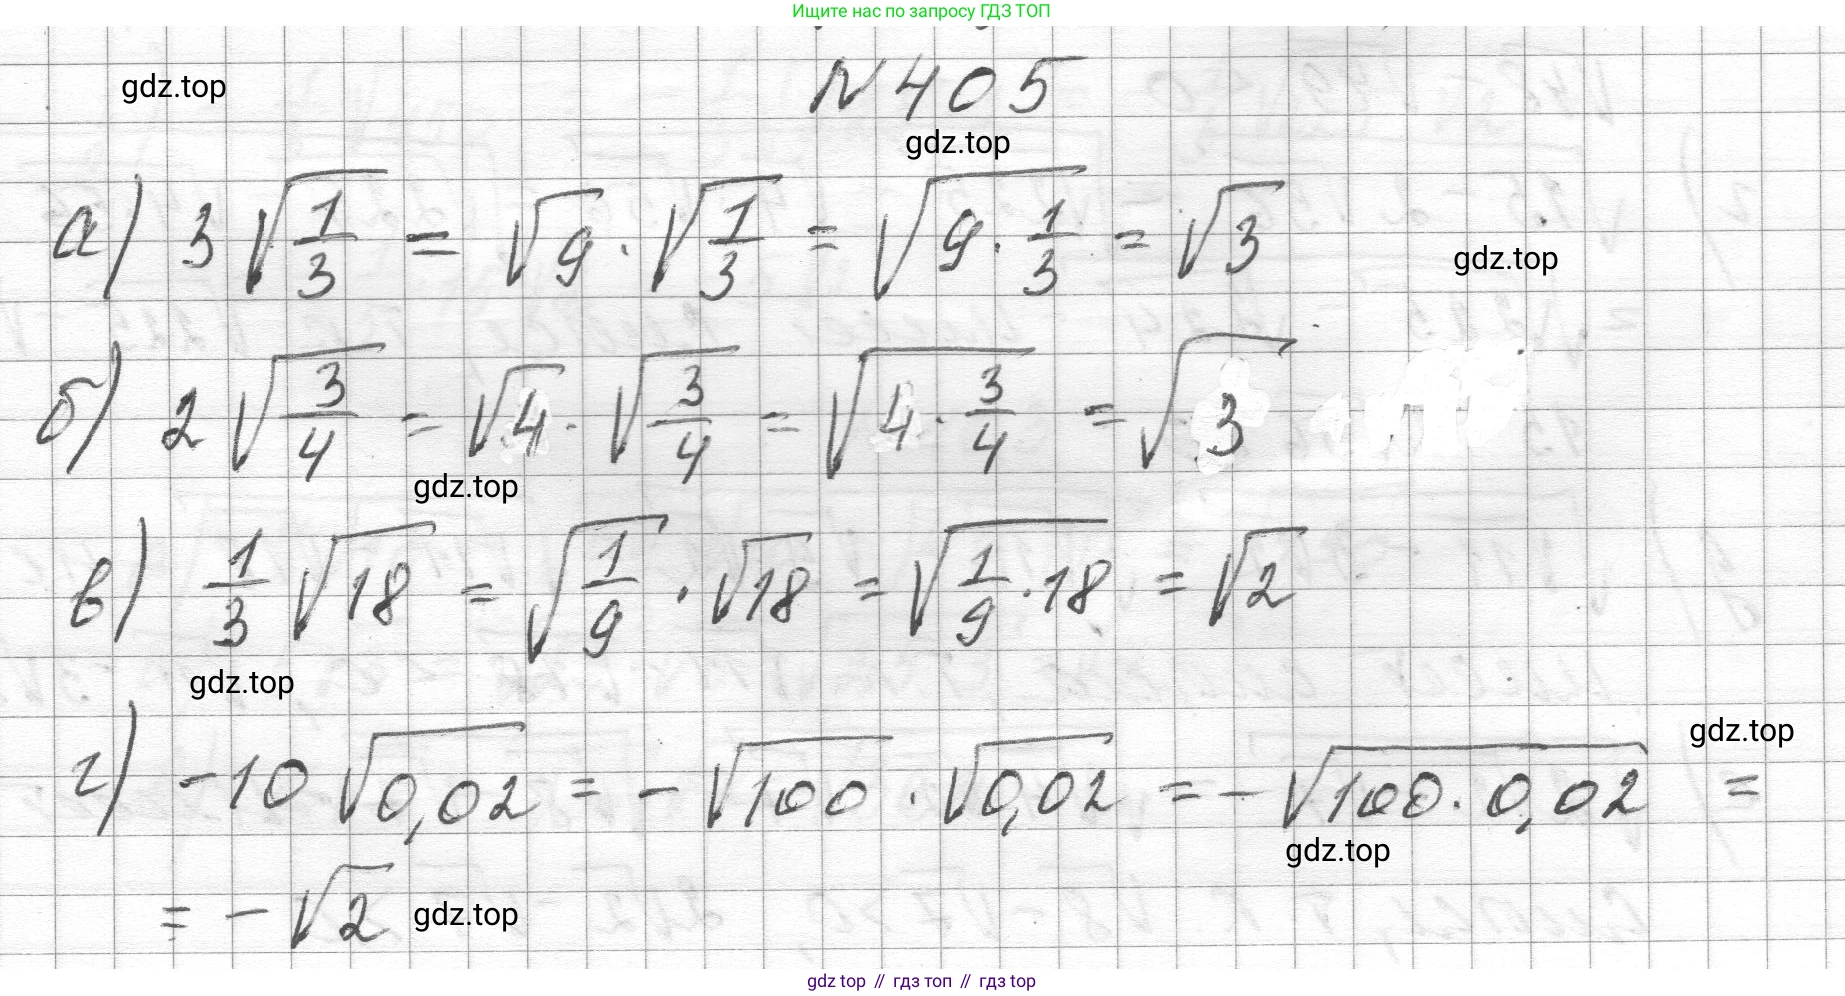 Ищите нас по запросу ГДЗ ТОП
№405
gdz.top
gdz.top
а) 3√(1/3) = √9 · √(1/3) = √(9 · 1/3) = √3
gdz.top
б) 2√(3/4) = √4 · √(3/4) = √(4 · 3/4) = √3
gdz.top
в) 1/3 √18 = √(1/9) · √18 = √(1/9 · 18) = √2
gdz.top
gdz.top
г) -10√0,02 = -√100 · √0,02 = -√(100 · 0,02) =
gdz.top
= -√2
gdz.top
gdz top // гдз топ // гдз top